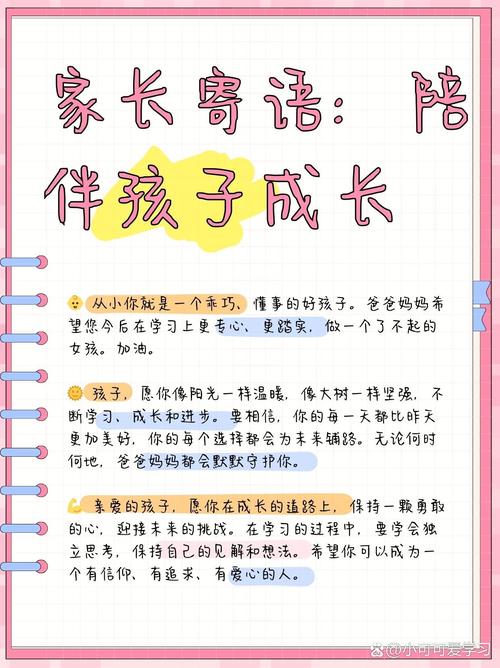 家长寄语：陪
伴孩子成长
从小你就是一个乖巧、懂事的好孩子。爸爸妈妈希
望您今后在学习上更专心、更踏实，做一个了不起的
女孩。加油。
孩子，愿你像阳光一样温暖，像大树一样坚强，不
断学习、成长和进步。要相信，你的每一天都比昨天
更加美好，你的每个选择都会为未来铺路。无论何时
何地，爸爸妈妈都会默默守护你。
亲爱的孩子，愿你在成长的道路上，保持一颗勇敢
的心，迎接未来的挑战。在学习的过程中，要学会独
立思考，保持自己的见解和想法。希望你可以成为一
个有信仰、有追求、有爱心的人。
@小可可爱学习